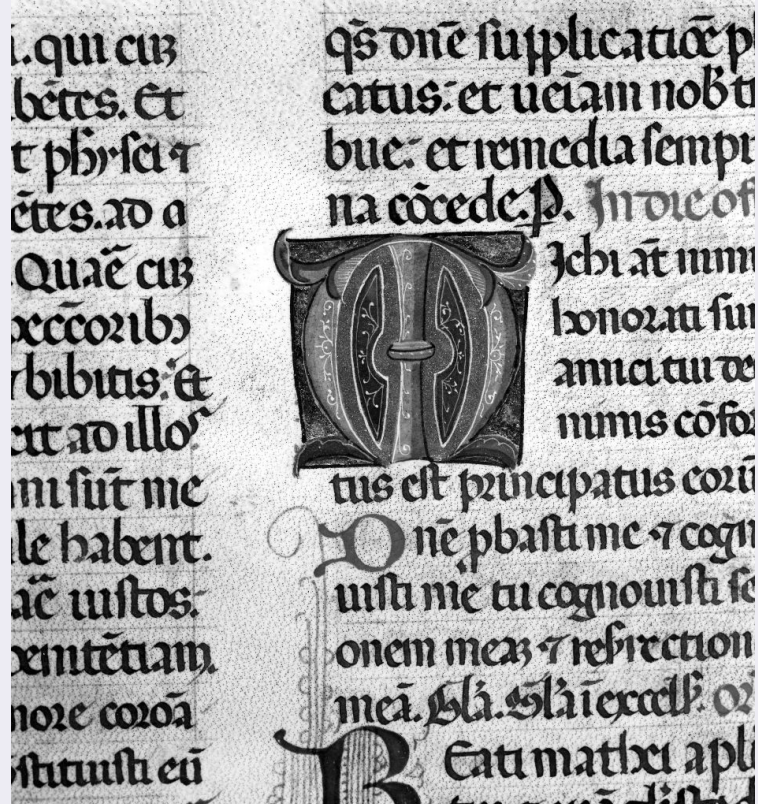 .qui cūꝫ
bētes. Et
t physici ⁊
ētes. ad a
Quāe cūꝫ
bibitis: Et
cit ad illos
ni sūt me
le habent.
ac̄ iustos:
penitētiam.
nore coroā
ostituisti eū
q̄s dn̄e supplicatiōe p
catus: et ueīam nob tr
bue: et remedia sempr
na cōcede. P. In die of
Michi āt nimi
honorati sun
amici tui de
nimis cōfor
tus est principatus eorū
Dn̄e ꝓbasti me ⁊ cogn
uisti me tu cognouisti se
onem meaꝫ ⁊ resurrection
meā. Gl̄a. Gl̄a ī excels̄. or
Beati mathei apl̄i